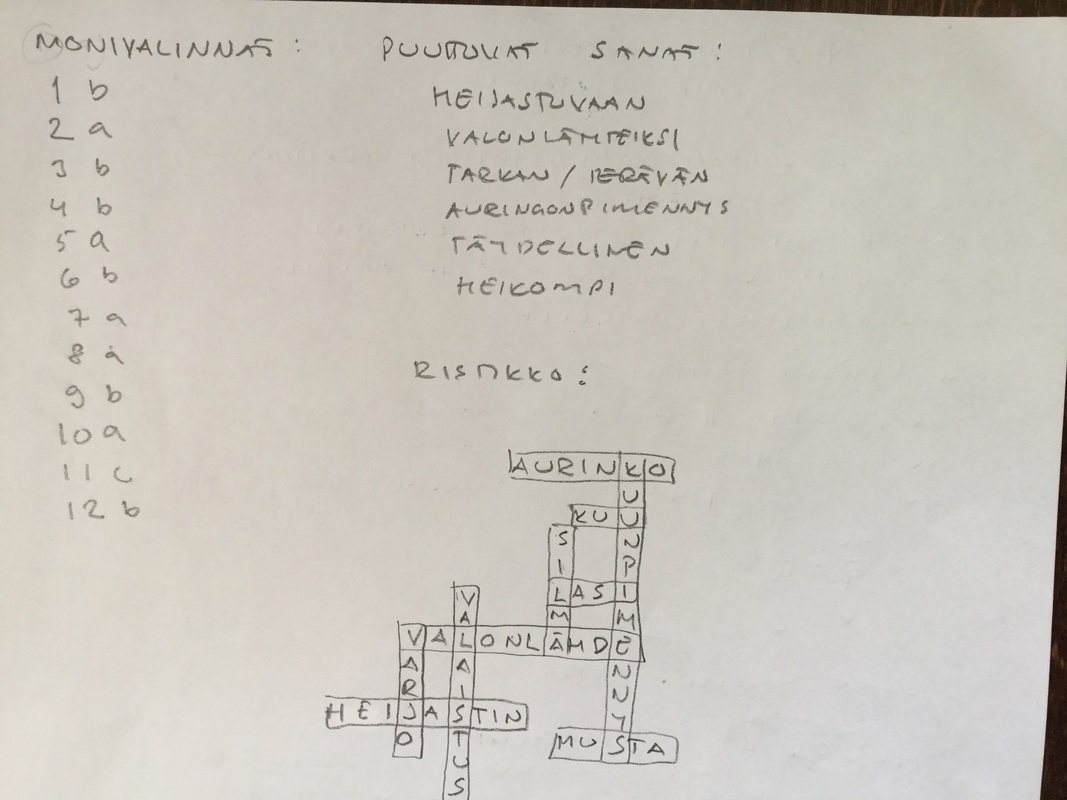 MONIVALINNAT:
1 b
2 a
3 b
4 b
5 a
6 b
7 a
8 a
9 b
10 a
11 c
12 b
PUUTTUVAT SANAT:
HEIJASTUVAAN
VALONLÄHTEIKSI
TARKAN / TERÄVÄN
AURINGONPIMENNYS
TÄYDELLINEN
HEIKOMPI
RISTIKKO:
AURINKO
KUUNPIMENNYS
KUU
SILMÄ
LASI
VALAISTUS
VALONLÄHDE
VARJO
HEIJASTIN
MUSTA